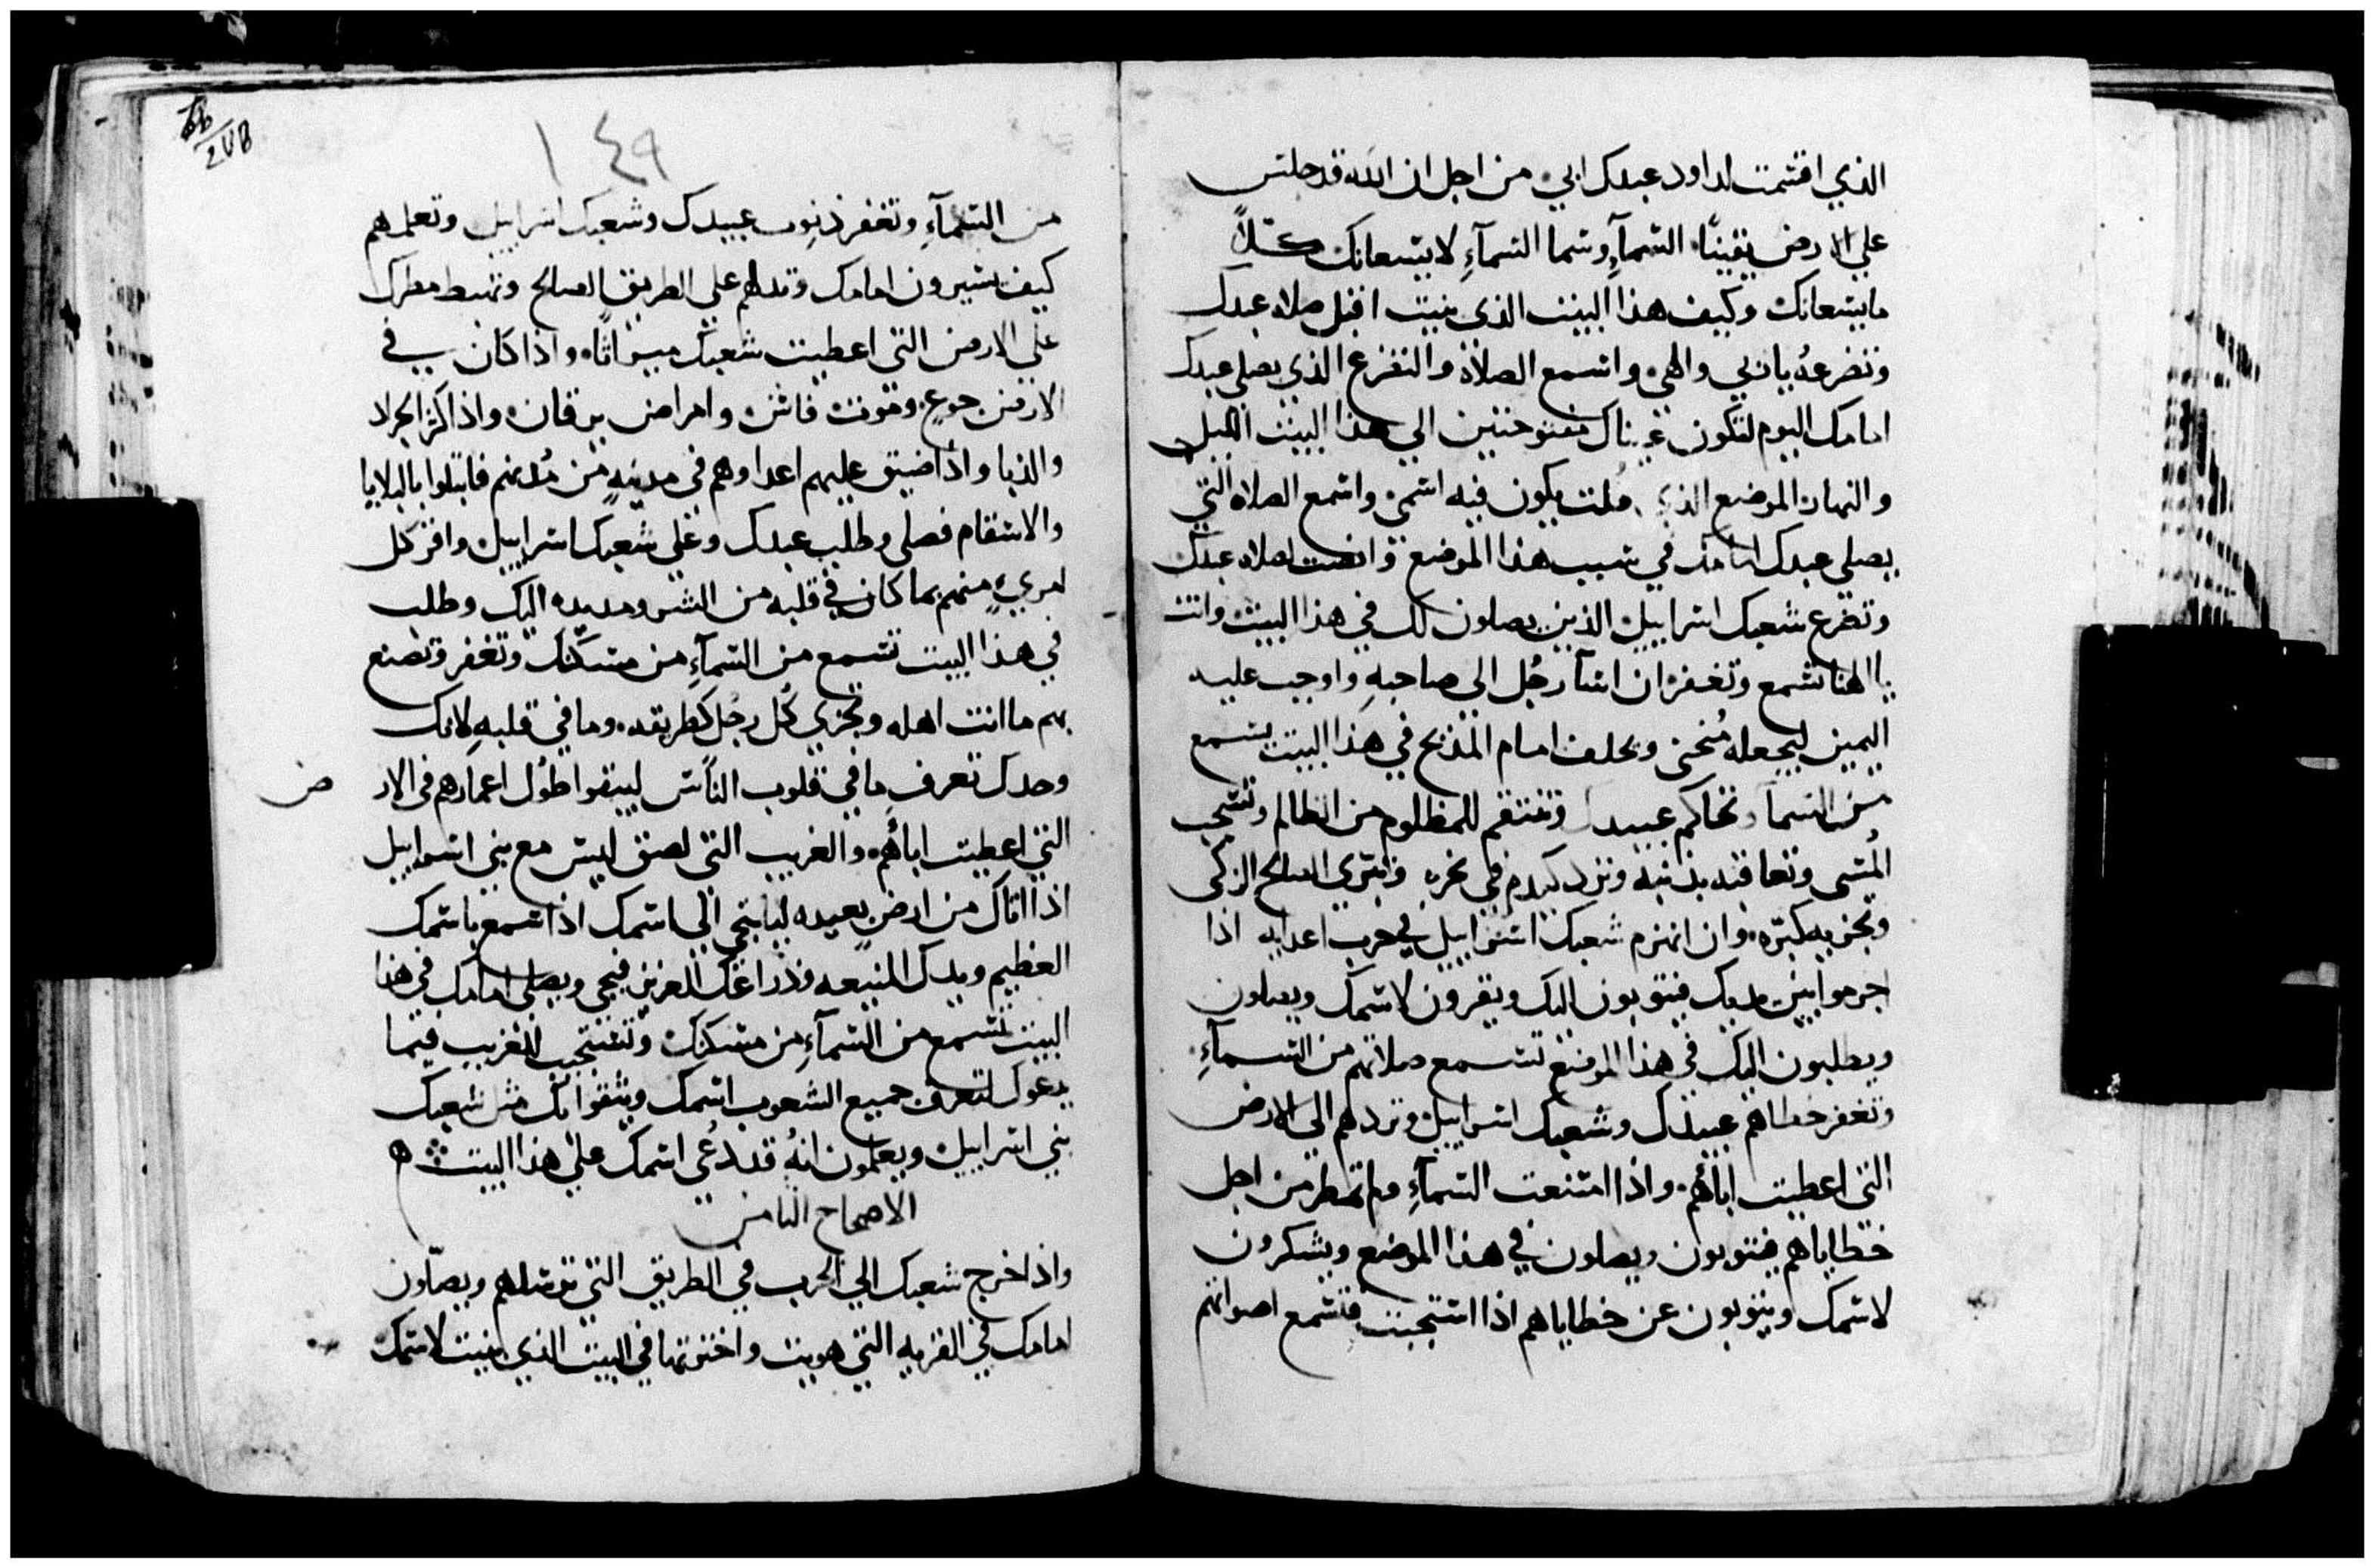 الذي اقسمت لداود عبدك ابي من اجل ان الله قد جلس
علي الارض يقينًا السمآءِ وسما السمآءِ لا يسعانك كلاً
ما يسعانك وكيف هذا البيت الذي بنيت اقبل صلاه عبدك
وتضرعهُ يا ربي والهي واسمع الصلاة والتضرع الذي يصلي عبدك
امامك اليوم لتكون عيناك مفتوحتين الي هذا البيت الليل
والنهار الموضع الذي قلت يكون فيه اسمي واسمع الصلاه التي
يصلي عبدك امامك في سبب هذا الموضع وانصت لصلاه عبدك
وتضرع شعبك اسراييل الذين يصلون لك في هذا البيت وانت
يا الهنا تسمع وتغفر ان اسآ رجُل الي صاحبهِ واوجب عليه
اليمين ليجعله مُنحني ويحلف امام المذبح في هذا البيت يسمع
من السمآ وتحاكم عبيدك وتنتقم للمظلوم من الظالم وتسحب
المُسي وتعاقبه بذنبه وترد كيدهم في نحره وتبري الصالح الزكي
وتجزيه كبرّه وان انهزم شعبك اسراييل في حرب اعدايه اذا
اجرموا بين يديك فيتوبون اليك ويقرون لاسمك ويصلون
ويطلبون اليك في هذا الموضع تسمع صلاتهم من السمآءِ
وتغفر خطاهم عبيدك وشعبك اسراييل وتردهم الي الارض
التي اعطيت اباٰهم واذا امتنعت السمآءِ ولم تمطر من اجل
خطاياهم فيتوبون ويصلون في هذا الموضع ويشكرون
لاسمك ويتوبون عن خطاياهم اذا استجبت فتسمع اصواتهم
١٤٩
من السمآءِ وتغفر ذنوب عبيدك وشعبك اسراييل وتعلمهم
كيف يسيرون امامك وتدلهم علي الطريق الصالح وتهبط مطرك
علي الارض التي اعطيت شعبك ميراثًا واذا كان في
الارض جوع وموت فاش وامراض يرقان واذا كثر الجراد
والدبا واذا ضيق عليهم اعداوهم في مدينهٍ من مُدنهم فابتلوا بالبلايا
والاسقام فصلي وطلب عبدك وعلي شعبك اسراييل واقر كل
امريءٍ منهم بما كان في قلبه من الشر ومد يده اليك وطلب
في هذا البيت تسمع من السمآءِ من مسكنك وتغفر وتصنع
بهم ما انت اهله وتجزي كُل رجُل كطريقه وما في قلبهِ لانك
وحدك تعرف ما في قلوب النّاس ليبقوا طُول اعمارهم في الار
ض
التي اعطيت اباٰهم والغريب التي لصق ليس مع بني اسراييل
اذا اتاك من ارض بعيده ليلتجي الي اسمك اذا سمع باسمك
العظيم ويدك المنيعه وذراعك العزيز فيجي ويصلي امامك في هذا
البيت تسمع من السمآءِ من مسكنك وتستجيب للغريب فيما
يدعوك لتعرف جميع الشعوب اسمك ويتقوا بك مثل شعبك
بني اسراييل ويعلمون انهُ قد دُعي اسمك علي هذا البيت
الاصحاح الثامن
واذا خرج شعبك الي الحرب في الطريق التي ترسلهم ويصلّون
امامك في القريه التي هويت واخترتها في البيت الذي بنيت لاسمك